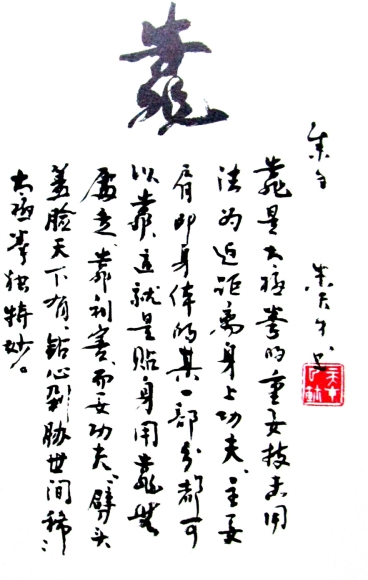 靠
靠是太极拳的重要技击用
法为近距离身上功夫、主要
肩即身体的某一部分都可
以靠、这就是贴身用靠无
处走、靠利害而要功夫、劈头
盖脸天下有、钻心剁胁世间稀、
太极拳独特妙。
朱天才书